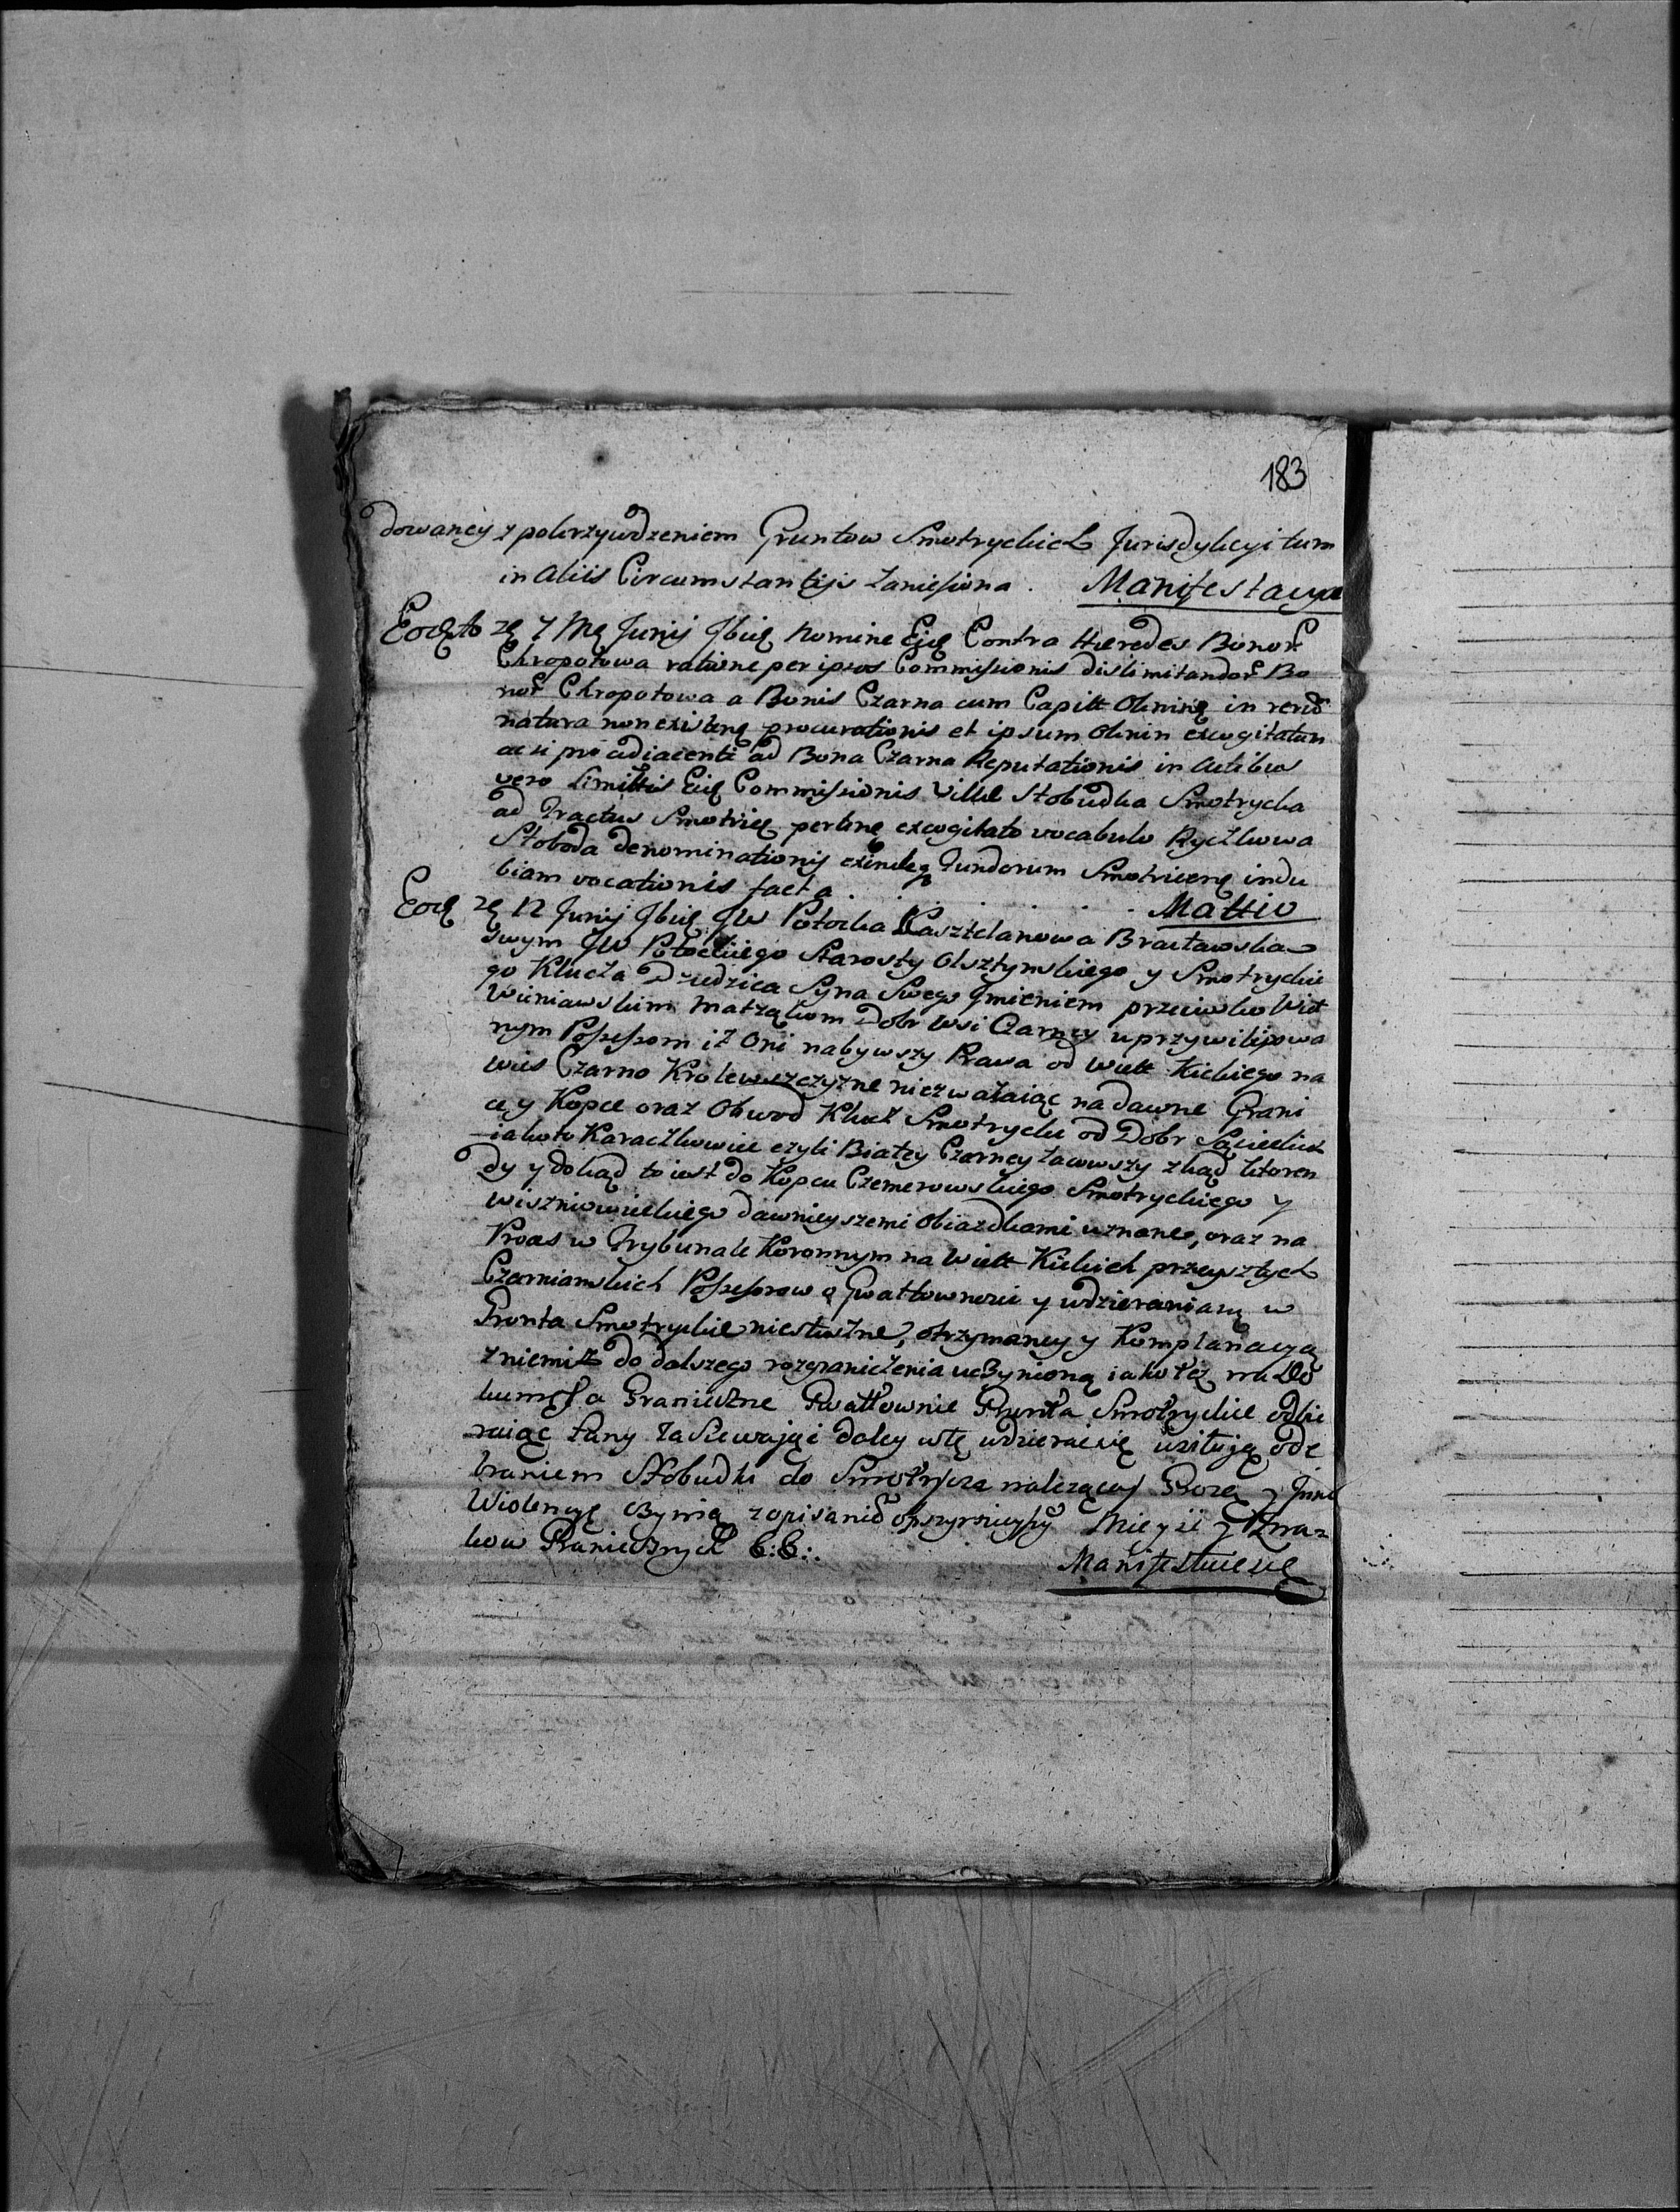 183
dowaney z pokrzywdzeniem Gruntow Smotryckich Jurisdykcyi tum
in aliis Circumstantijs zaniesiona. Manifestacya
Eodem 7 Junij Ibidem Nomine Ejus Contra Hæredes Bonor
Chropotowa ratione per ipsos Commissionis dislimitandor Bo
nor Chropotowa a Bonis Czarna cum Capitt Olinine in rerum
natura non existen procurationis et ipsum Olinin excogitatum
ac si pro adiacenti ad Bona Czarna Reputationis in Actibus
vero Limittis Commissionis Villæ Słobudka Smotrycka
ad Tractus Smotricen pertinen excogitato vocabulo Ryczkowa
Słoboda denominationis exindeq Fundorum Smotricen indu
biam vocationis facta . . . . . . Mattio
12 Junij Ibidem JW Potocka Kasztelanowa Bracławska
swym JW Potockiego Starosty Olsztynskiego y Smotryckie
go Klucza Dziedzica Syna Swego Imieniem przeciwko Wiel
Wieniawskim Małżąkom Dobr Wsi Czarney uprzywilijowa
nym Possessorom iż Oni nabywszy Prawa od Wiel Kickiego na
wies Czarno Krolewszczyzne niezwazaiąc na dawne Grani
ce y Kopce oraz Obwod Klucz Smotrycki od Dobr Sąsiedzkich
iakoto Karaczkowiec czyli Białey Czarney zacowszy zkąd ktoren
dy y dokąd to iest do Kopca Czemerowskiego Smotryckiego y
Wiszniowieckiego dawnieyszemi obiazdkami uznane, oraz na
Proces w Trybunale Koronnym na Wiel Kickich przeszłych
Czarnianskich Possessorow o Gwałtownosci y wdzieranią w
Grunta Smotryckie niesłuszne, otrzymaney y Komplanacyą
z niemiż do dalszego rozgraniczenia uczynioną iakoteż na Do
kumęta Graniczne Gwałtownie Grunta Smotryckie odbie
raiąc Łany zasiewając i daley wtę wdzieraesię usiłują ode
braniem Słobudki do Smotrycza należącey Grozą y Inne
Wiolencye czynią z opisanie obszyrnieyszy Mieysc y Zna
kow Granicznych &:&:. Manifestuiesię